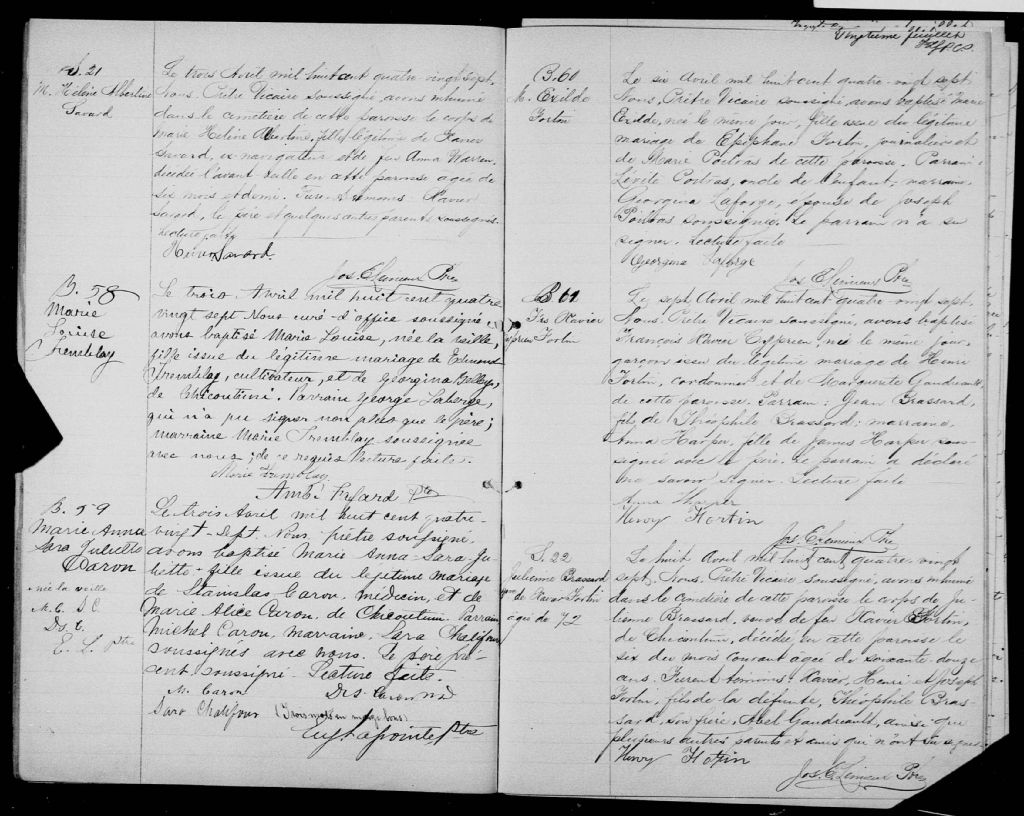 S. 21
M. Hélène Albertine
Savard
Le trois Avril mil huit cent quatre-vingt sept,
Nous, Prêtre Vicaire soussigné, avons inhumé
dans le cimetière de cette paroisse le corps de
Marie Hélène Albertine, fille légitime de Xavier
Savard, ex-navigateur et de feu Anna Warren,
décédée l'avant-veille en cette paroisse agée de
six mois et demi. Furent témoins: Xavier
Savard, le père et quelques autres parents soussignés.
Lecture faite
Savard.
Jos. E. Lemieux Ptre
B. 58
Marie
Louise
Tremblay
Le trois Avril mil huit cent quatre
vingt sept Nous curé d'office soussigné,
avons baptisé Marie Louise, née la veille,
fille issue du légitime mariage de Edmond
Tremblay, cultivateur, et de Georgina Belley,
de Chicoutimi. Parrain George Laberge,
qui n'a pu signer non plus que le père;
marraine Marie Tremblay soussignée
avec nous; de ce requis Lecture faite.
Marie Tremblay
Amb. Fafard Ptre
B. 59
Marie Anna
Sara Juliette
Caron
née la veille
M. C. S C
Ds. C.
E. L. Ptre
Le trois Avril mil huit cent quatre-
vingt-sept, Nous, prêtre soussigné,
avons baptisé Marie Anna-Sara-Ju-
liette-fille issue du légitime mariage
de Stanislas Caron, médecin, et de
Marie Alice Caron, de Chicoutimi. Parrain
Michel Caron, marraine, Sara Chalifour
soussignés avec nous. Le père pré-
sent soussigné. Lecture faite.
M. Caron
Sara Chalifour
(Trois mots en marge bons)
Eug. Lapointe Ptre
Vingtième feuillet
B. 60
M. Exilda
Fortin
Le six Avril mil huit cent quatre-vingt sept,
Nous, Prêtre Vicaire soussigné, avons baptisé Marie
Exilda, née le même jour, fille issue du légitime
mariage de Epiphane Fortin, journalier et
de Marie Poitras de cette paroisse. Parrain:
Poitras, oncle de l'enfant; marraine
Georgina Laforge, épouse de Joseph
Poitras soussignée. Le parrain n'a su
signer. Lecture faite
Georgina Laforge
Jos. E. Lemieux Ptre
B 61
Frs Xavier
Cyprien Fortin
Le sept Avril mil huit cent quatre-vingt sept,
Nous, Prêtre Vicaire soussigné, avons baptisé
François Xavier Cyprien, né le même jour,
garçon issu du légitime mariage de Henri
Fortin, cordonnier et de Marguerite Gaudreault
de cette paroisse. Parrain: Jean Brassard,
fils de Théophile Brassard; marraine,
Anna Harper, fille de James Harper sous-
signée avec le père. Le parrain a déclaré
ne savoir signer. Lecture faite
Anna Harper
Henry Fortin
Jos. E. Lemieux Ptre
S. 22
Julienne Brassard
de Xavier Fortin
agée de 72
Le huit Avril mil huit cent quatre-vingt
sept, Nous, Prêtre Vicaire soussigné, avons inhumé
dans le cimetière de cette paroisse le corps de Ju-
lienne Brassard, veuve de feu Xavier Fortin,
de Chicoutimi, décédée en cette paroisse le
six du mois courant agée de soixante-douze
ans. Furent témoins: Xavier, Henri et Joseph
Fortin, fils de la défunte, Théophile Bras-
sard, son frère, Abel Gaudreault, ainsi que
plusieurs autres parents et amis qui n'ont su signer
Henry Fortin
Jos. E. Lemieux Ptre